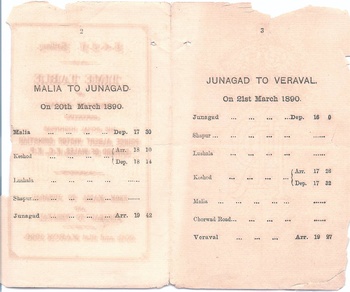 2
MALIA TO JUNAGAD
On 20th March 1890.
Malia ... ... ... ... Dep. 17 30
Keshod ... ... ... Arr. 18 10
Dep. 18 14
Lushala ... ... ... ... ......
Shapur... ... ... ... ......
Junagad ... ... ... Arr. 19 42
3
JUNAGAD TO VERAVAL.
On 21st March 1890.
Junagad ... ... ... Dep. 16 0
Shapur... ... ... ... ......
Lushala ... ... ... ... ......
Keshod ... ... ... Arr. 17 26
Dep. 17 32
Malia ... ... ... ... ......
Chorwad Road... ... ... ......
Veraval ... ... ... Arr. 19 27